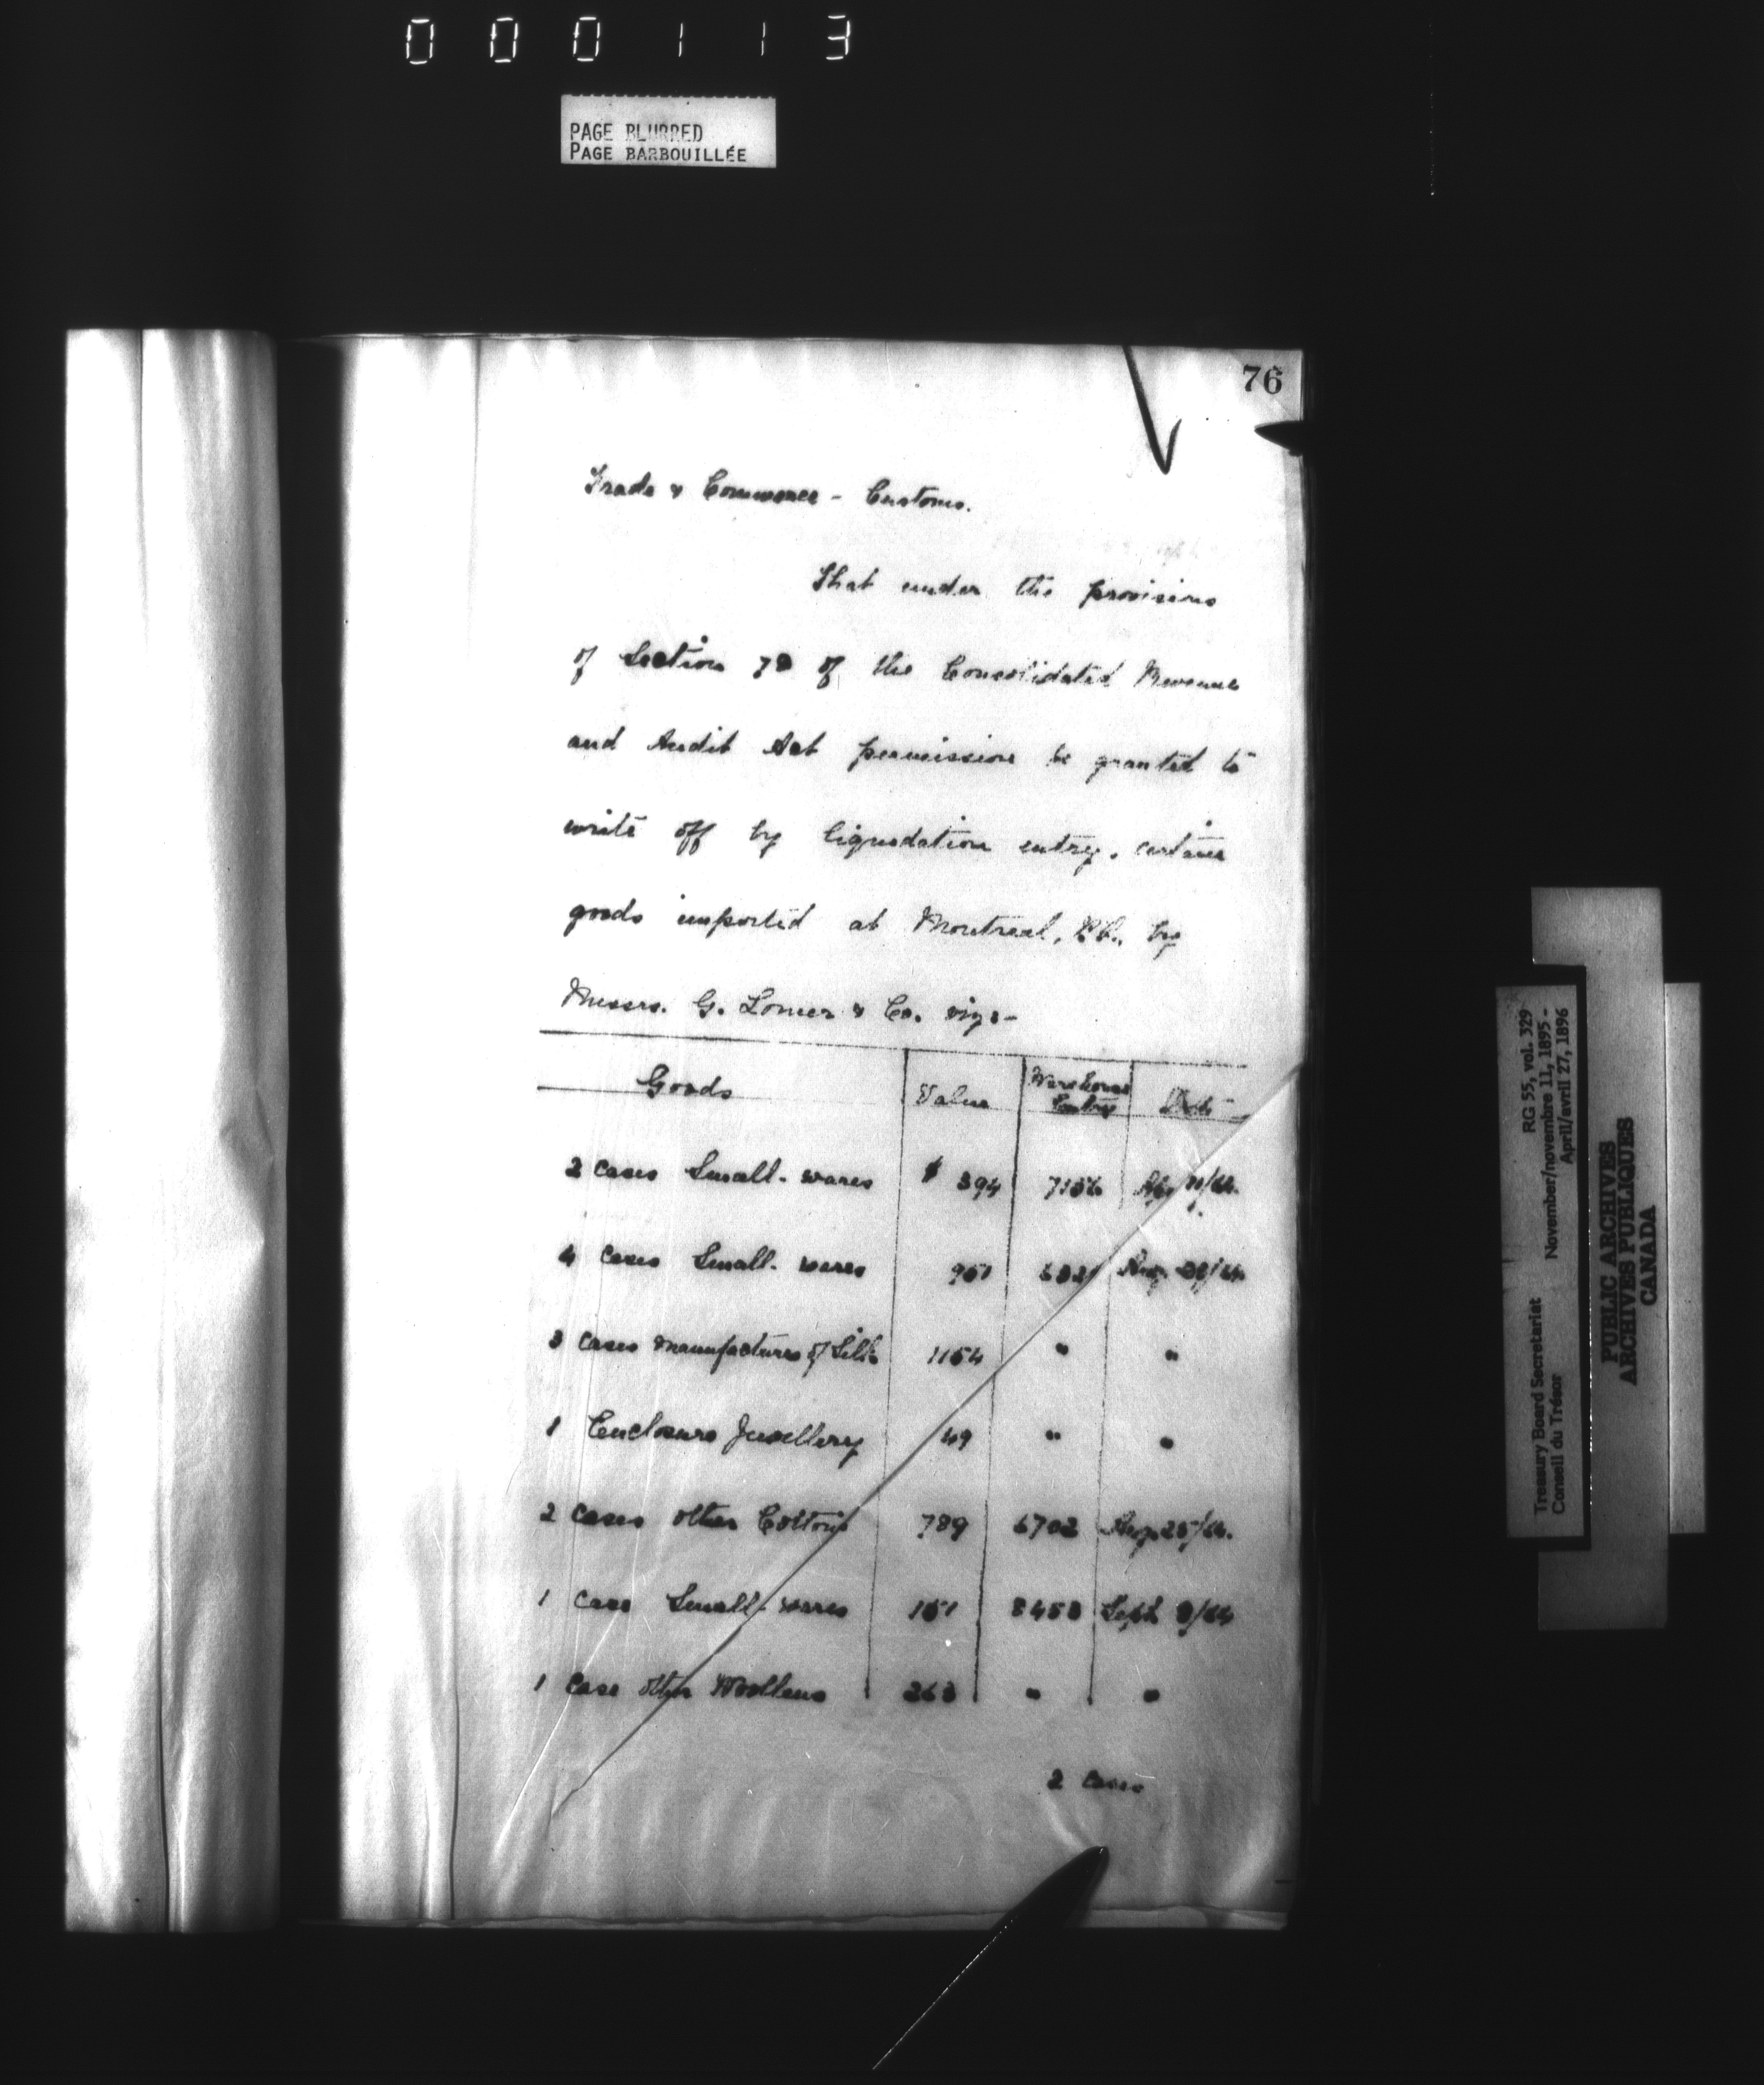 000113
PAGE BLURRED
PAGE BARBOUILLÉE
76
Trade & Commerce - Customs.
That under the provisions
of Section 78 of the Consolidated Revenue
and Audit Act permission be granted to
write off by liquidation entry, certain
goods imported at Montreal, by
Messrs. G. Lomer & Co. viz:-
Goods Value Warehouse Entry Date
2 Cases Small-wares $ 394
4 Cases Small-wares 951
3 Cases manufactures of Silk 1154 " "
1 Enclosure Jewellery 49 " "
2 Cases other Cottons 789 6702 Aug. 25/64.
1 Case Small-wares 151 8453 Sept 9/64
1 Case other Woollens 263 " "
2 Cases
Treasury Board Secretariat RG 55, vol. 329
Conseil du Trésor November/novembre 11, 1895 -
April/avril 27, 1896
PUBLIC ARCHIVES
ARCHIVES PUBLIQUES
CANADA